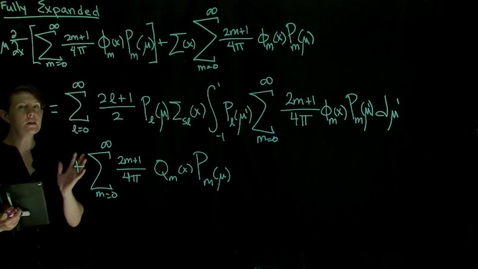 Fully Expanded
μ ∂/∂x [ ∑_{m=0}^{∞} (2m+1)/(4π) ϕ_m(x) P_m(μ) ] + Σ(x) ∑_{m=0}^{∞} (2m+1)/(4π) ϕ_m(x) P_m(μ)
= ∑_{ℓ=0}^{∞} (2ℓ+1)/2 P_ℓ(μ) Σ_{sℓ}(x) ∫_{-1}^{1} P_ℓ(μ') ∑_{m=0}^{∞} (2m+1)/(4π) ϕ_m(x) P_m(μ') dμ'
+ ∑_{m=0}^{∞} (2m+1)/(4π) Q_m(x) P_m(μ)